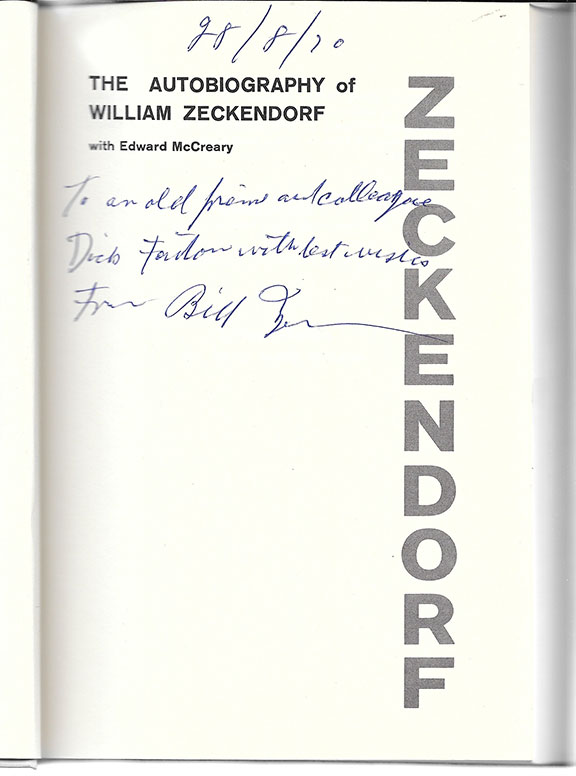 28/8/70
THE AUTOBIOGRAPHY of
WILLIAM ZECKENDORF
with Edward McCreary
To an old friend and colleague
Dick with best wishes
From Bill
ZECKENDORF